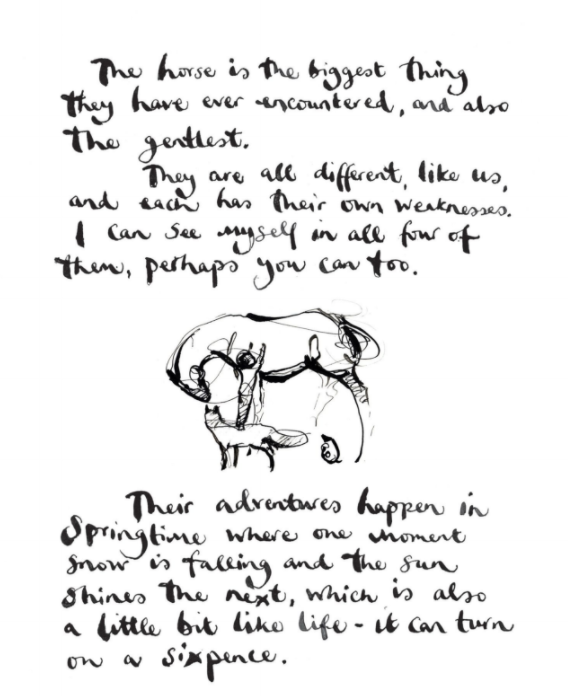 The horse is the biggest thing
they have ever encountered, and also
the gentlest.
They are all different, like us,
and each has their own weaknesses.
I can see myself in all four of
them, perhaps you can too.
Their adventures happen in
Springtime where one moment
snow is falling and the sun
shines the next, which is also
a little bit like life - it can turn
on a sixpence.